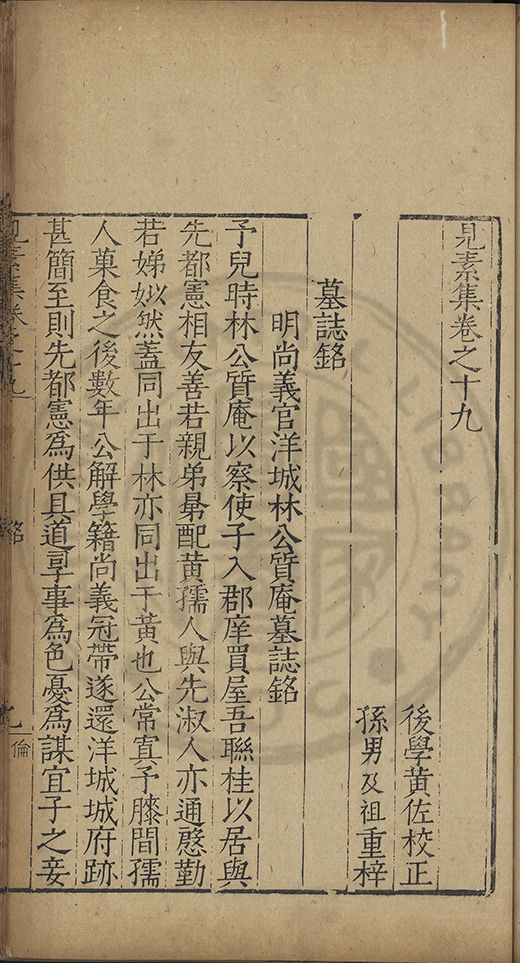 見素集卷之十九
後學黃佐校正
孫男及祖重梓
墓誌銘
明尚義官洋城林公質庵墓誌銘
予兒時林公質庵以察使子入郡庠買屋吾聯桂以居與
先都憲相友善若親弟晜配黃孺人與先淑人亦通慇勤
若娣姒然蓋同出于林亦同出于黃也公常寘予膝間孺
人菓食之後數年公解學籍尚義冠帶遂還洋城城府跡
甚簡至則先都憲為供具道𡦗事為色憂為謀宜子之妾
見素集卷之十九
銘
一
倫